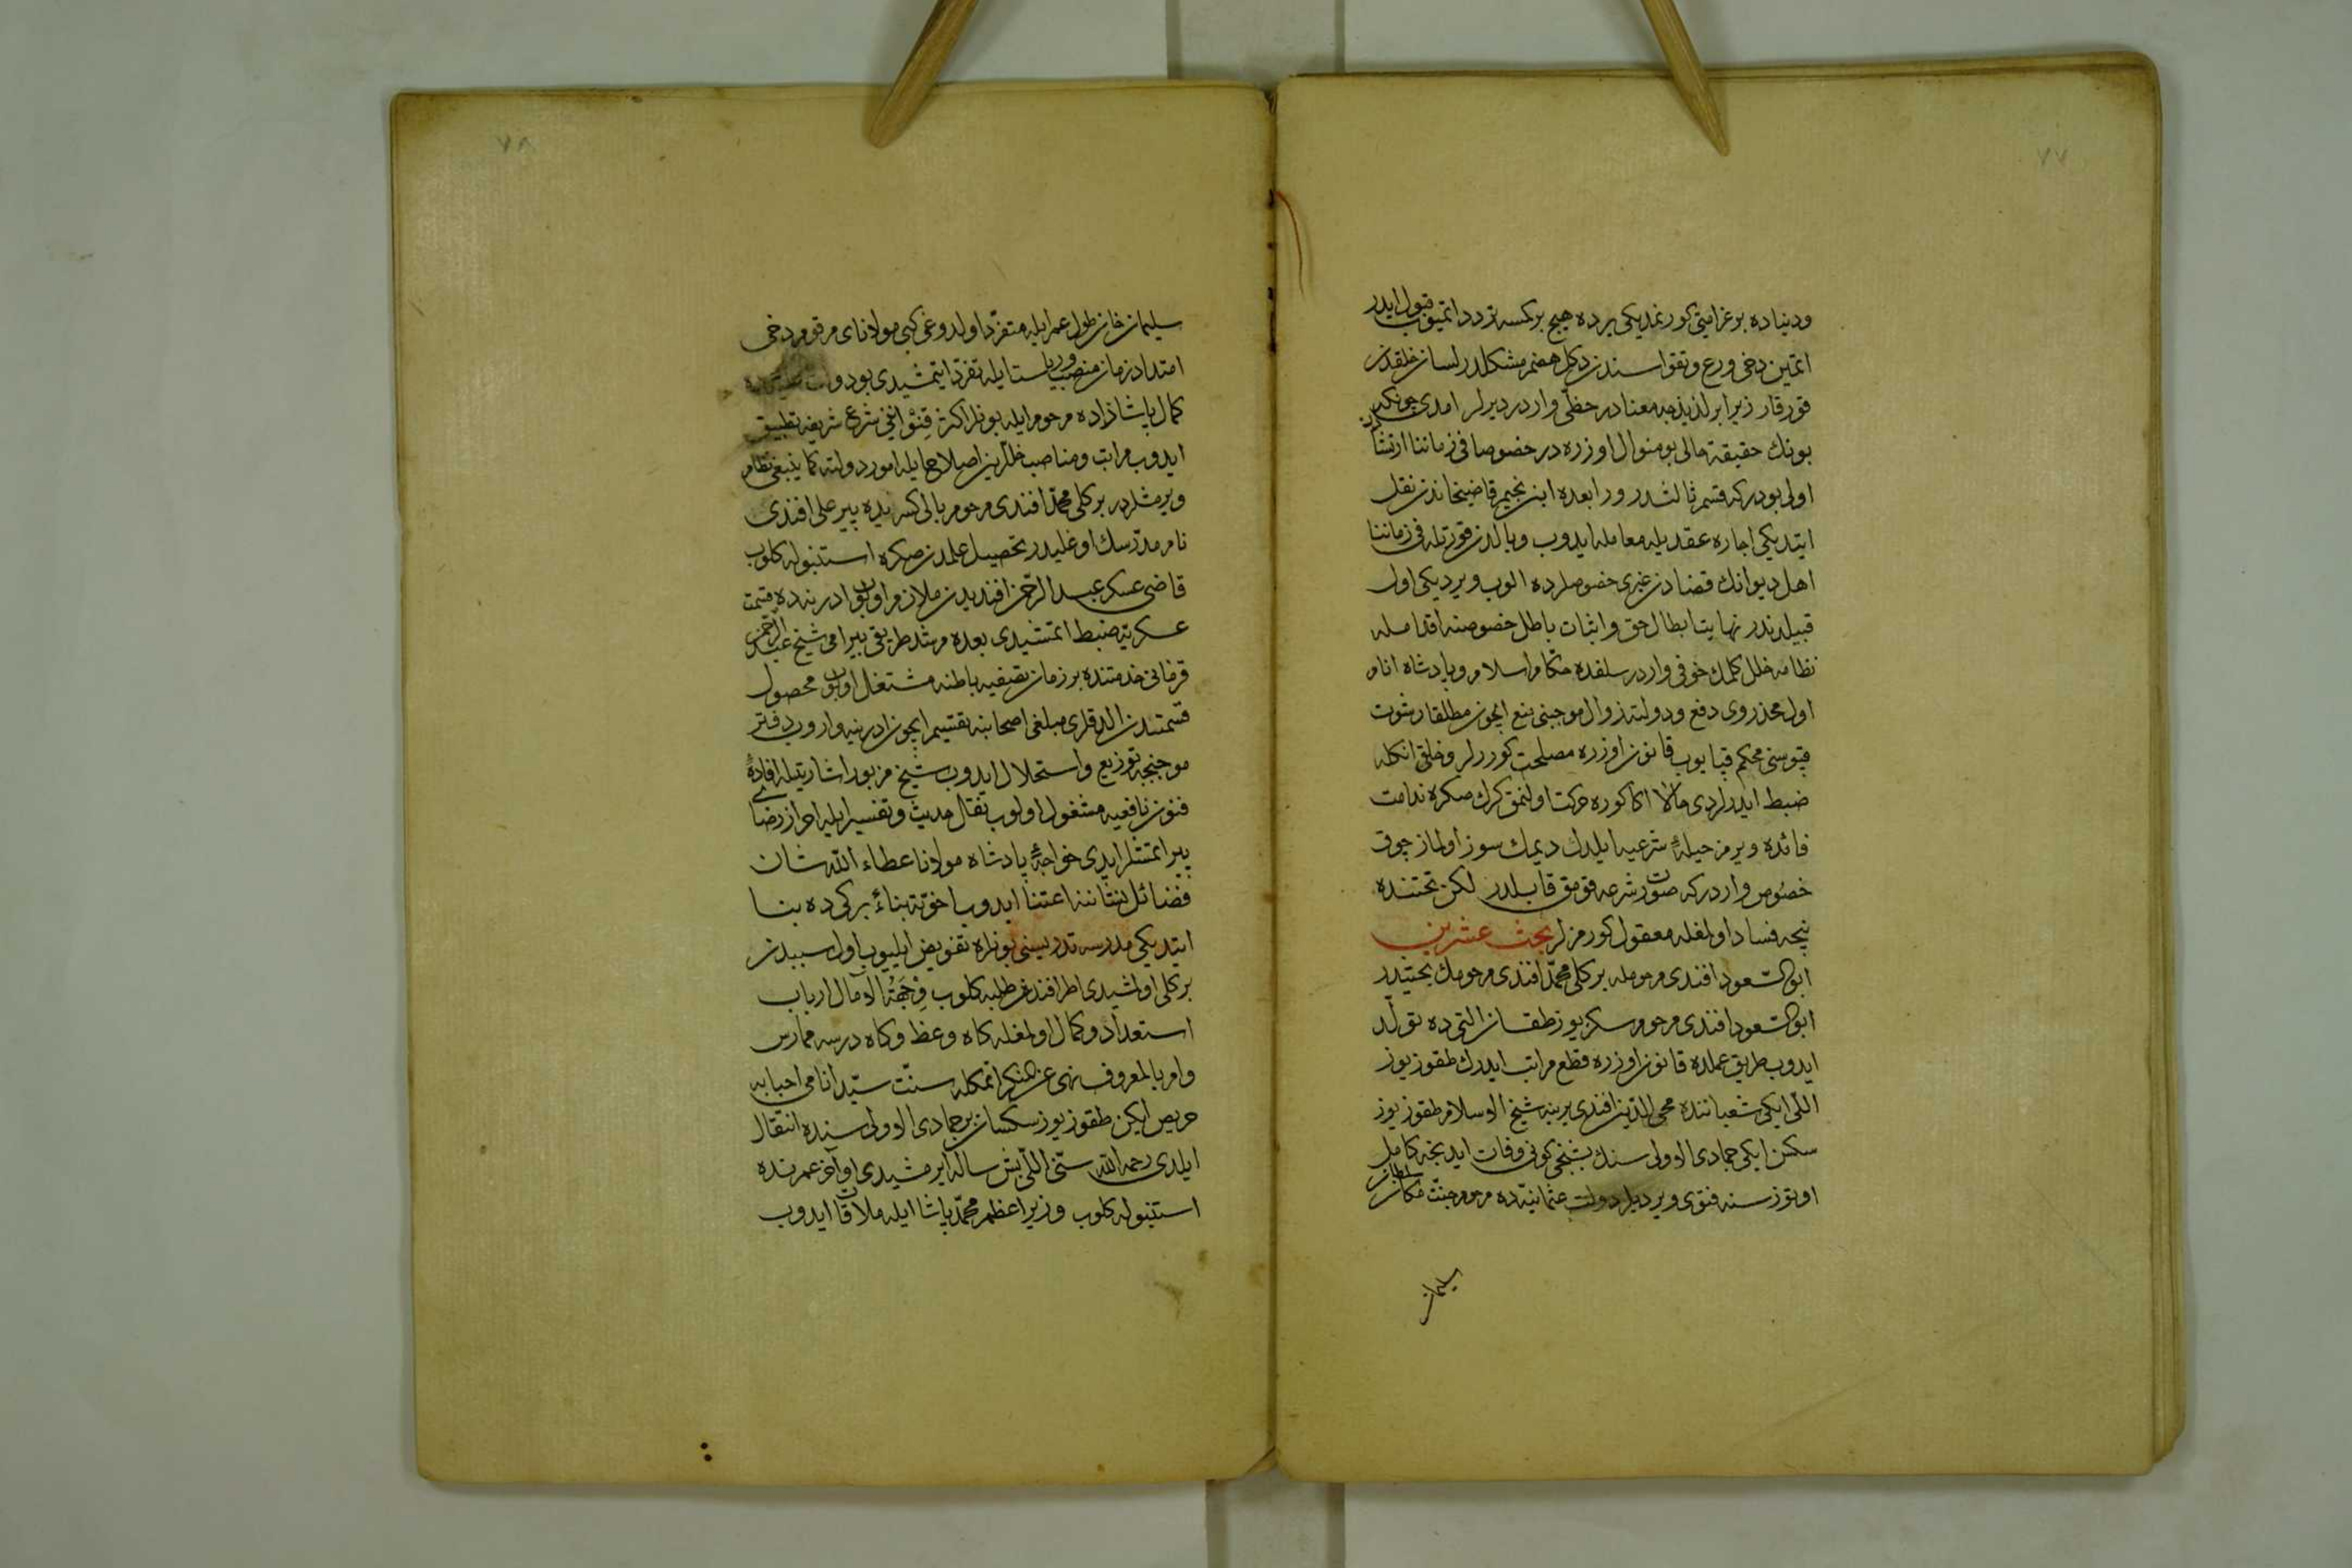 ٧٧
ودنياده بو غرامتی كورنمديكی يرده هيچ بر كمسه تردد اتميوب قبول ايدر
اتمين دخی ورع وتقواسندن دكل هضم مشكلدر لسان خلقدن
قورقار زيرا بر لذيذجه معنادر حظی واردر ديرلر امدی چونكه
بونك حقيقت حالی بو منوال اوزره در خصوصا فی زماننا ارتشادن
اولی بودر كه قسم ثالثدر ورابعده ابن نجيم قاضيخاندن نقل
ايتديكی اجاره عقديله معامله ايدوب وبالدن قورتله فی زماننا
اهل ديوانك قضادن غيری خصوصلرده الوب ويرديكی اول
قبيلدندر نهايت ابطال حق واثبات باطل خصوصنه اقدامله
نظامه خلل كلمك خوفی واردر سلفده حكام اسلام وپادشاه انام
اول محذروی دفع ودولته زوال موجبنی منع ايچون مطلقا رشوت
قپوسنی محكم قپايوب قانون اوزره مصلحت كوررلر وخلق انكله
ضبط ايدرلردی حالا اكا كوره حركت اولنمق كرك صكره ندامت
فائده ويرمز حيلهٔ شرعيه ايلدك ديمك سوز اولماز چوق
خصوص واردر كه صورت شرعه قومق قابلدر لكن تحتنده
نيچه فساد اولمغله معقول كورمزلر بحث عشرين
ابو السعود افندی مرحومله بركلی محمد افندی مرحومك بحثيدر
ابو السعود افندی مرحوم سكز يوز طقسان التی ده تولد
ايدوب طريق علمده قانون اوزره قطع مراتب ايدرك طقوز يوز
اللی ايكی شعباننده محی الدين افندی يرينه شيخ الاسلام طقوز يوز
سكسن ايكی جمادی الاولی سنك بشنجی كونی وفات ايدنجه كامل
اوتوز سنه فتوی ويرديلر دولت عثمانيه ده مرحوم جنت مكان سلطان
سليمان
٧٨
سليمان خان طول عمر ايله متفرد اولدوغی كبی مولانای مرقوم دخی
امتداد زمان منصب ورياست ايله تفرد ايتمشيدی بو دولت عليه ده
كمال پاشا زاده مرحوم ايله بونلر اكثر قوانينی شرع شريفه تطبيق
ايدوب مراتب ومناصب خللرين اصلاح ايله امور دولته كما ينبغی نظام
ويرمشلردر بركلی محمد افندی مرحوم بالی كسريده پير علی افندی
نام مدرسك اوغليدر تحصيل علمدن صكره استنبوله كلوب
قاضی عسكر عبد الرحمن افنديدن ملازم اولوب ادرنه ده قسمت
عسكريه ضبط اتمشيدی بعده مرشد طريق بيرامی شيخ عبد الرحمن
قرمانی خدمتنده بر زمان تصفيه باطنه مشتغل اولوب محصول
قسمتدن الدقلری مبلغی اصحابنه تقسيم ايچون ادرنه يه واروب دفتر
موجبنجه توزيع واستحلال ايدوب شيخ مزبور اشارتيله افادهٔ
فنون نافعيه مشغول اولوب تقال حديث وتفسير ايله احراز رضای
پير اتمشلر ايدی خواجهٔ پادشاه مولانا عطاء الله شان
فضائل نشاننه اعتنا ايدوب اخرته بناءً بركی ده بنا
ايتديكی مدرسه تدريسنی بونلره تفويض ايليوب اول سببدن
بركلی اولمشيدی اطرافندن طلبه كلوب وجهة الآمال ارباب
استعداد وكمال اولمغله كاه وعظ وكاه درسه ممارس
وامر بالمعروف نهی عن المنكر اتمكله سنت سيد انامی احيايه
حريص ايكن طقوز يوز سكسان بر جمادی الاولی سنده انتقال
ايلدی رحمه الله سنی اللی بش ساله ايرمشيدی اواخر عمرنده
استنبوله كلوب وزير اعظم محمد پاشا ايله ملاقات ايدوب